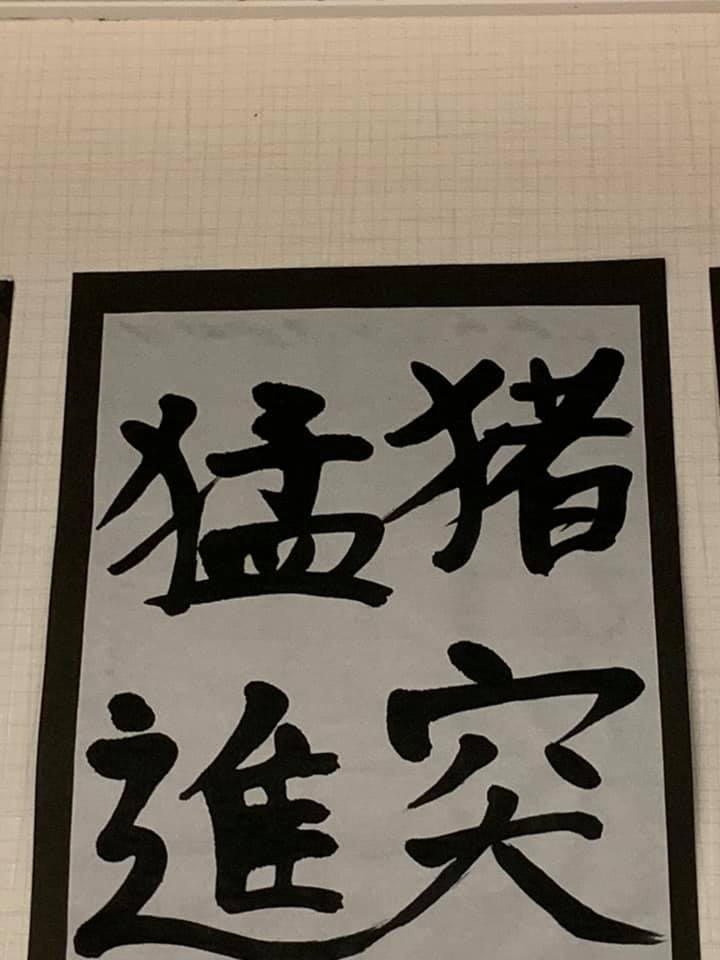 猪突
猛進